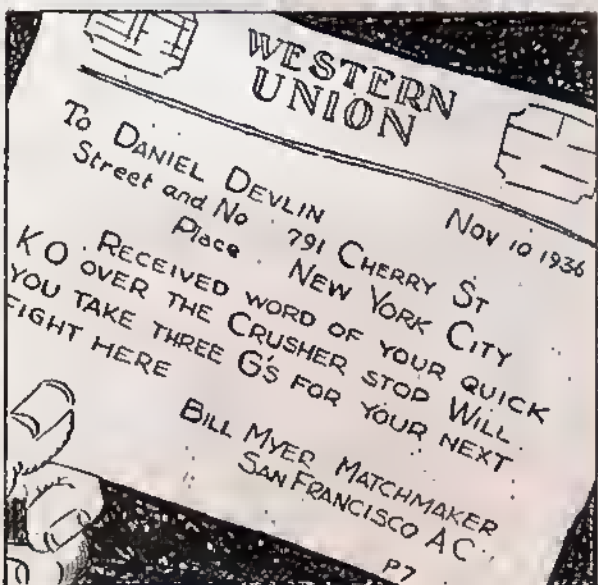 WESTERN
UNION
Nov 10 1936
To DANIEL DEVLIN
Street and No 791 CHERRY ST
Place NEW YORK CITY
RECEIVED WORD OF YOUR QUICK
KO OVER THE CRUSHER STOP WILL
YOU TAKE THREE G'S FOR YOUR NEXT
FIGHT HERE
BILL MYER MATCHMAKER
SAN FRANCISCO A C
P7